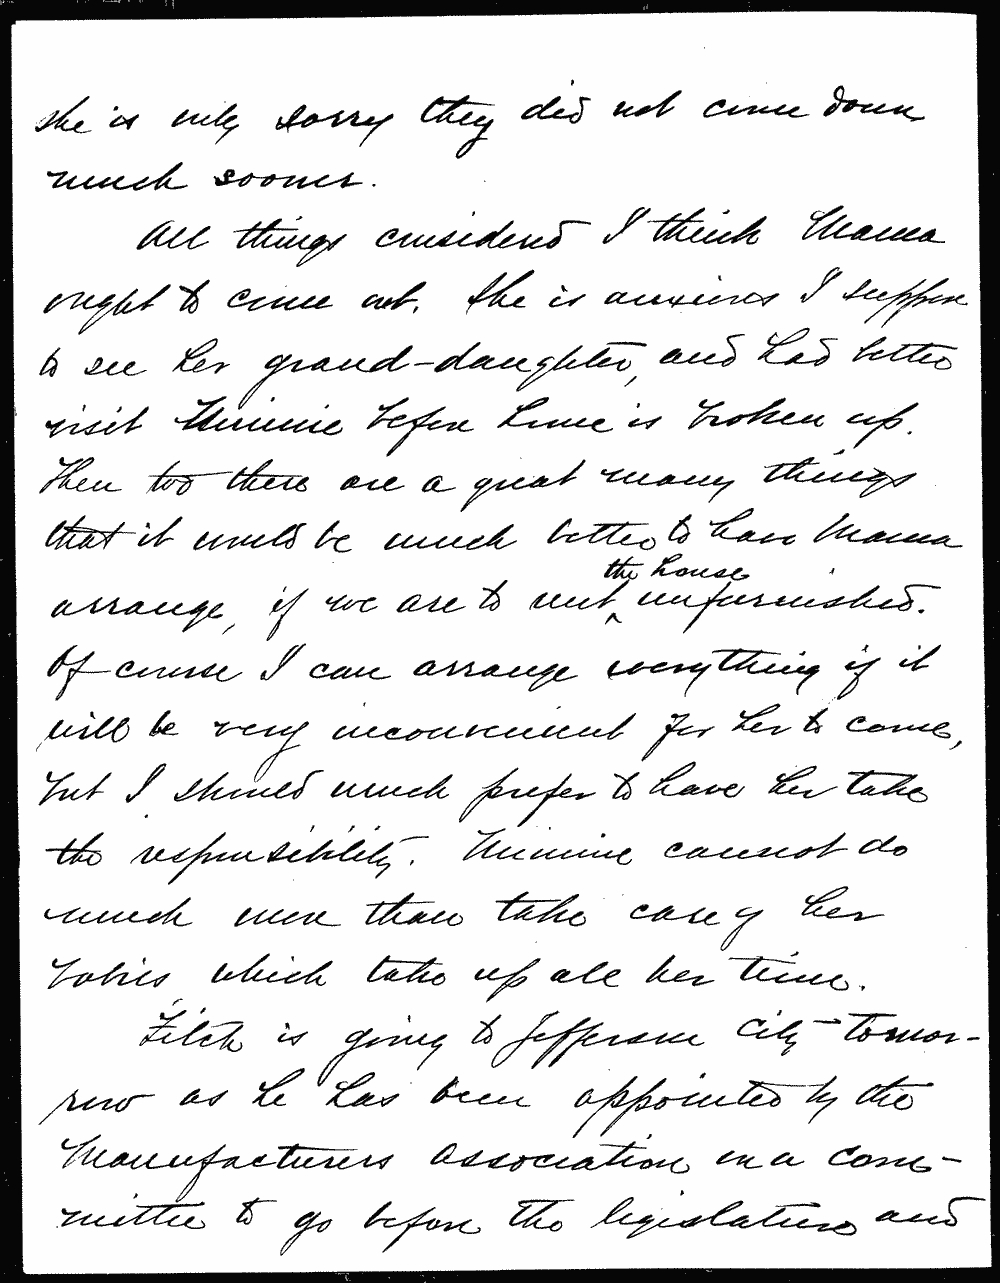 she is only sorry they did not come down
much sooner.
All things considered I think Mama
ought to come out. She is anxious I suppose
to see her grand-daughter, and had better
visit Minnie before home is broken up.
Then too there are a great many things
that it would be much better to have Mama
the house
arrange, if we are to rent ^ unfurnished.
Of course I can arrange everything if it
will be very inconvenient for her to come,
but I should much prefer to have her take
the responsibility. Minnie cannot do
much more than take care of her
babies which take up all her time.
Fitch is going to Jefferson City tomor-
row as he has been appointed by the
Manufacturers Association on a com-
mittee to go before the legislature and